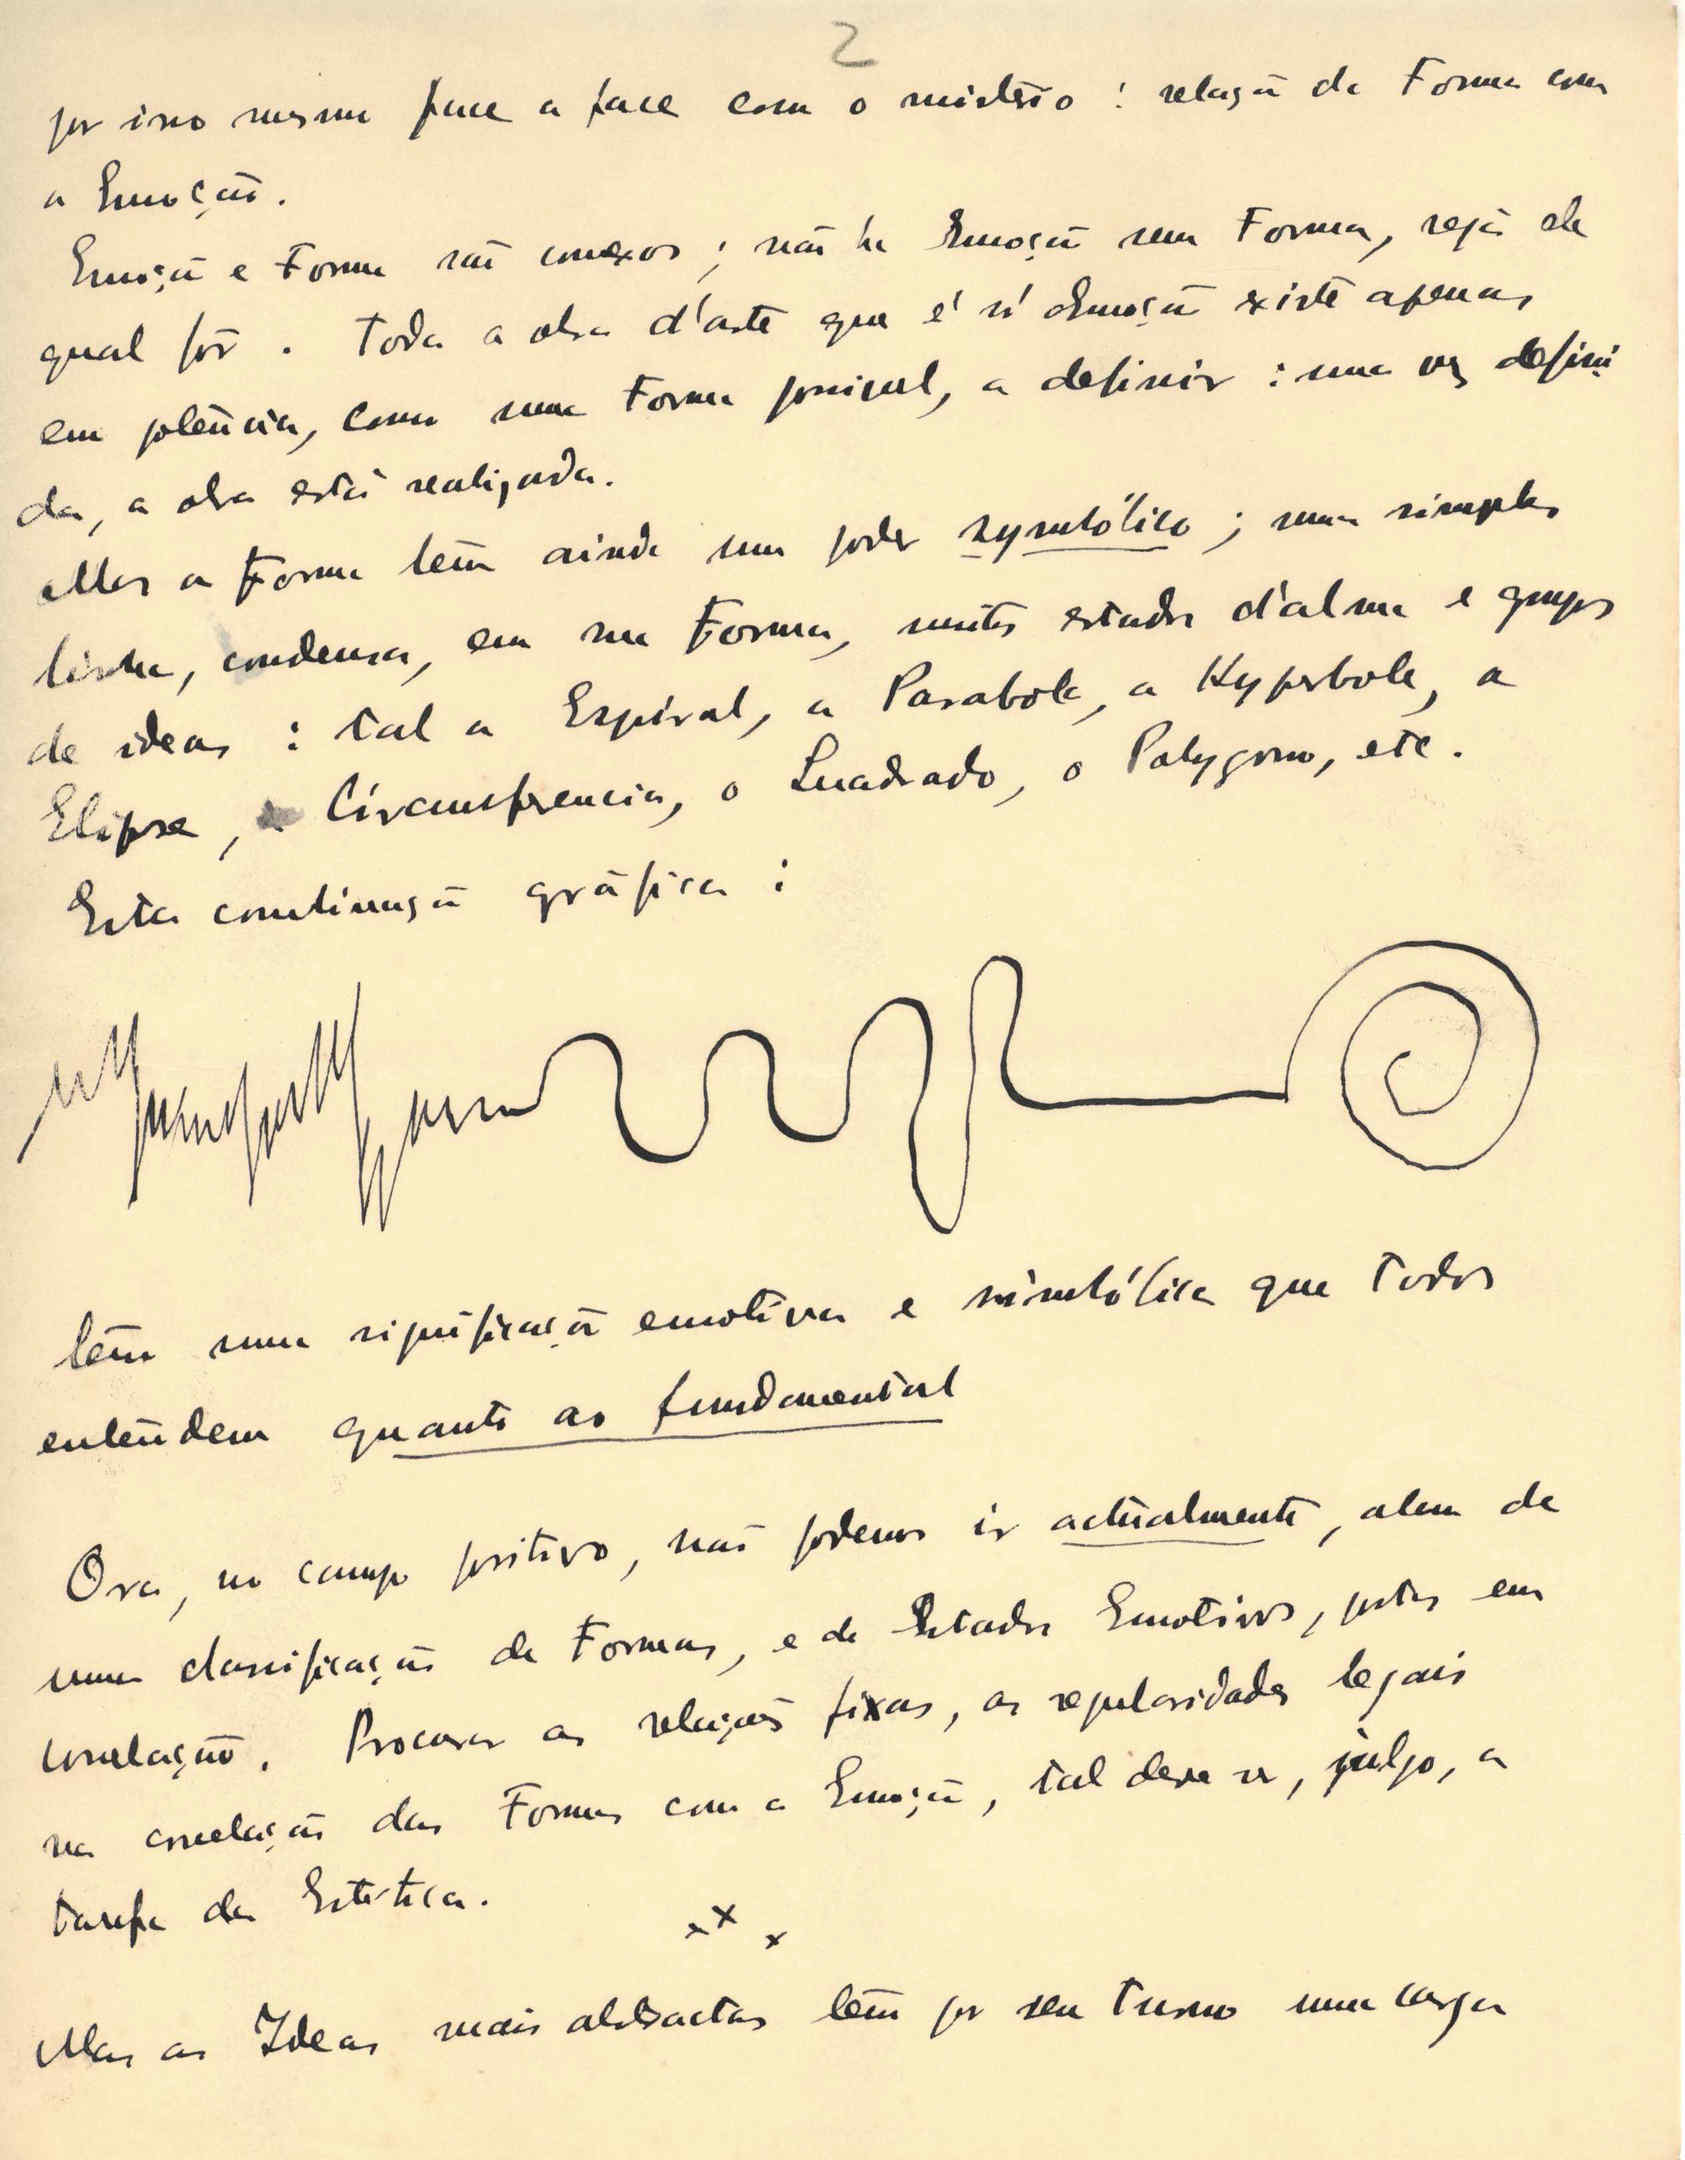 2
por isso mesmo face a face com o mistério : relação da Forma com
a Emoção.
Emoção e Forma são conexos ; não ha Emoção sem Forma, seja ela
qual fôr . Toda a obra d'arte que é só Emoção existe apenas
em potência, como uma Forma possivel, a definir : uma vez defini
da, a obra está realizada.
Mas a Forma tem ainda um poder symbólico ; uma simples
linha, condensa, em sua Forma, muitos estados d'alma e grupos
de ideas : tal a Espiral, a Parabola, a Hyperbole, a
Elipse, a Circumferencia, o Quadrado, o Polygono, etc.
Esta continuação gráfica :
tem uma significação emotiva e simbólica que todos
entendem quanto ao fundamental
Ora, no campo positivo, não podemos ir actualmente, alem de
uma classificação de Formas, e de Estados Emotivos, postos em
correlação. Procurar as relações fixas, as regularidades legais
na correlação das Formas com a Emoção, tal deve ser, julgo, a
tarefa da Estética.
x x x
Mas as Ideas mais abstractas têm por seu turno uma carga